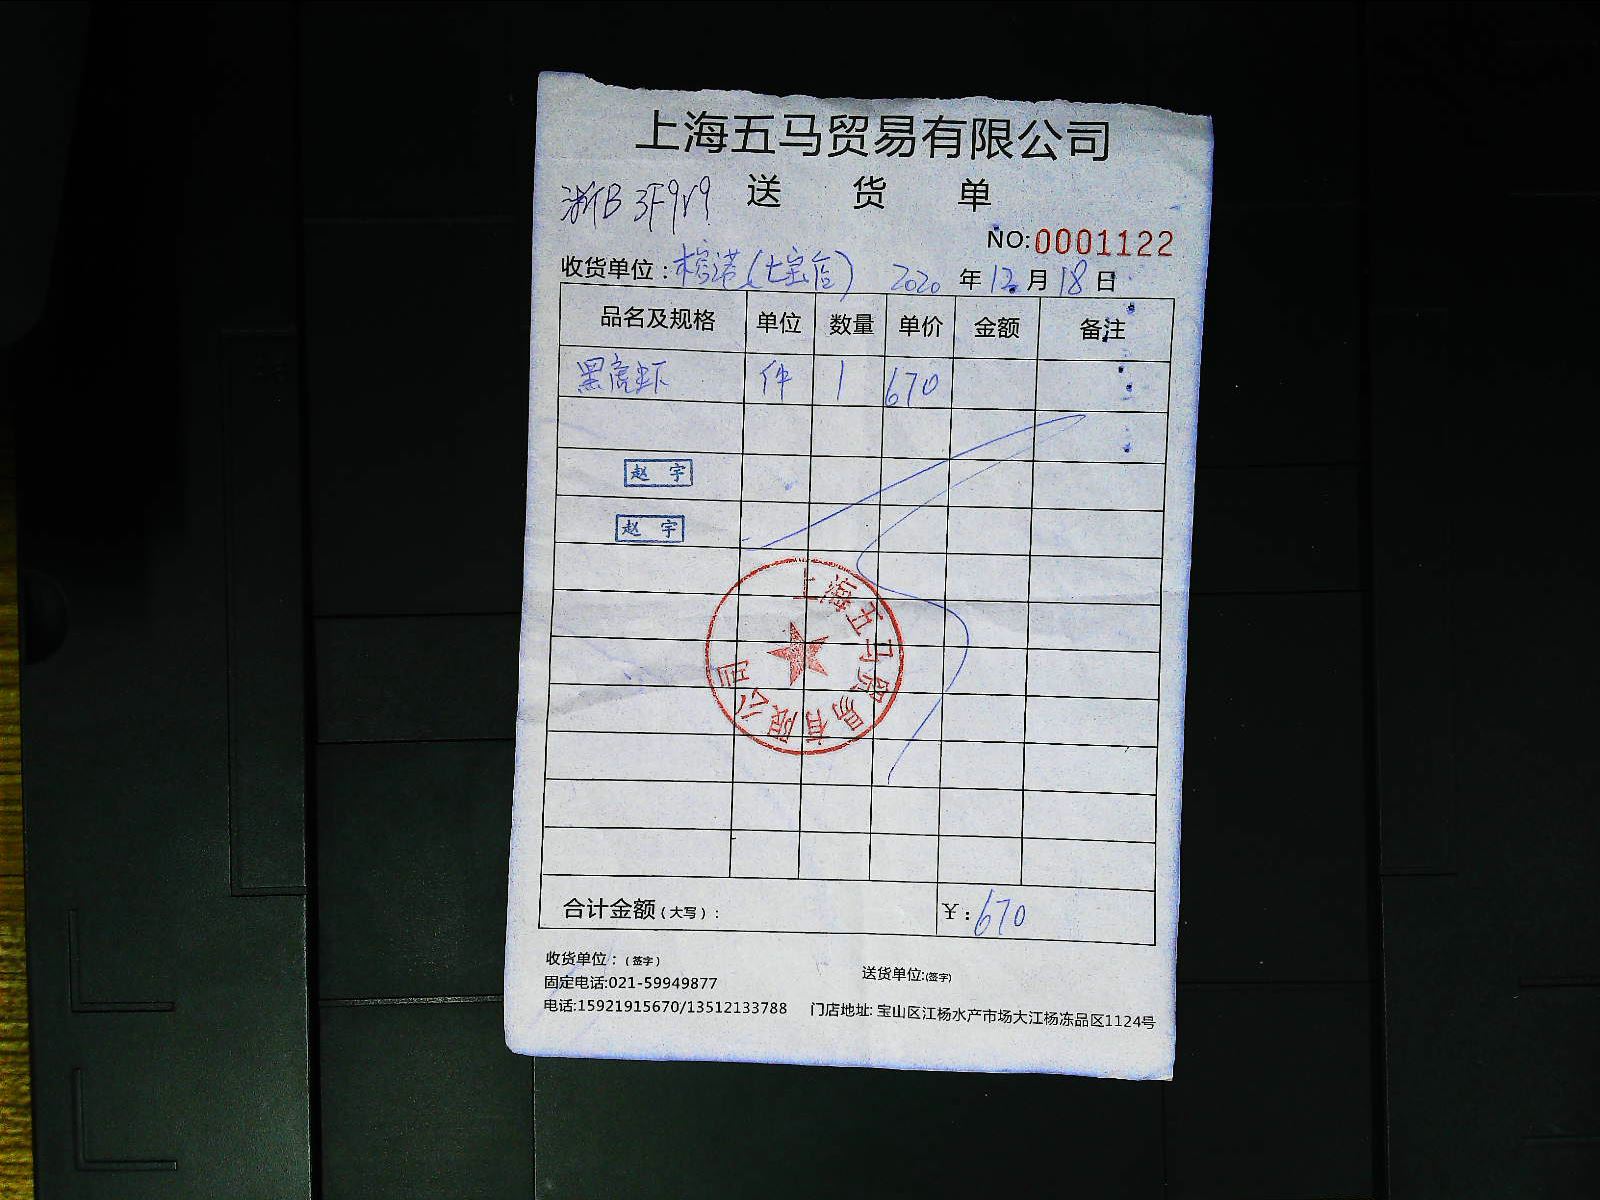 上海五马贸易有限公司
浙B 3F9V9 送 货 单
NO:0001122
收货单位：榕港(七宝店) 2020 年 12 月 18 日
品名及规格 单位 数量 单价 金额 备注
黑虎虾 件 1 670
赵 宇
赵 宇
上海五马贸易有限公司
合计金额（大写）： ￥：670
收货单位：（签字） 送货单位:(签字)
固定电话:021-59949877
电话:15921915670/13512133788 门店地址: 宝山区江杨水产市场大江杨冻品区1124号